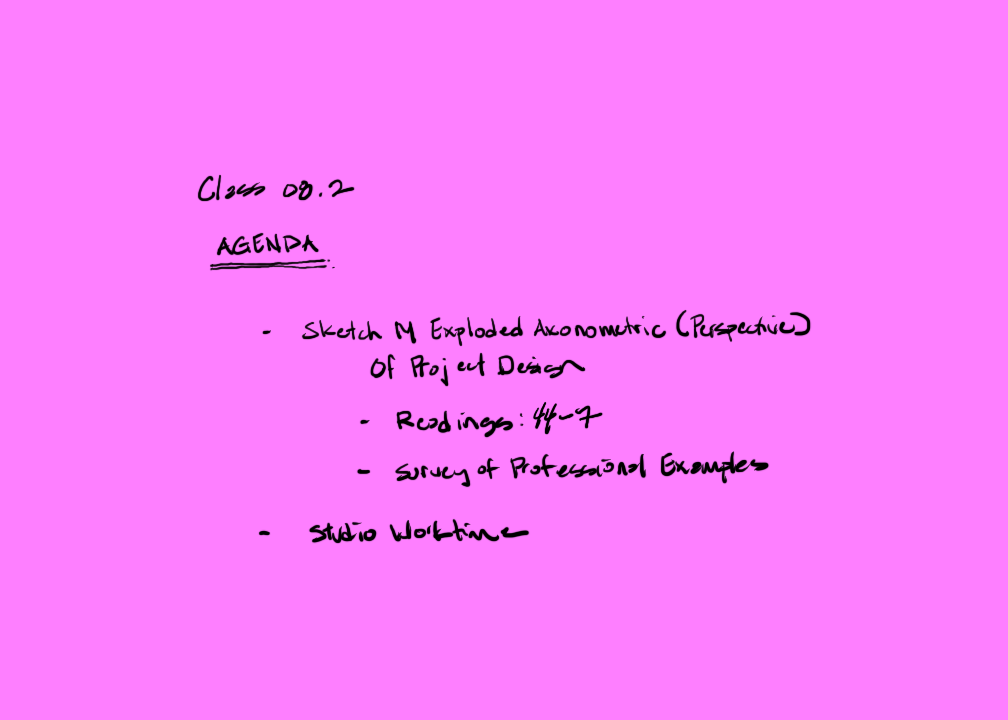 Class 08.2
AGENDA
- Sketch M Exploded Axonometric (Perspective)
Of Project Design
- Readings: 44-7
- Survey of Professional Examples
- Studio Worktime